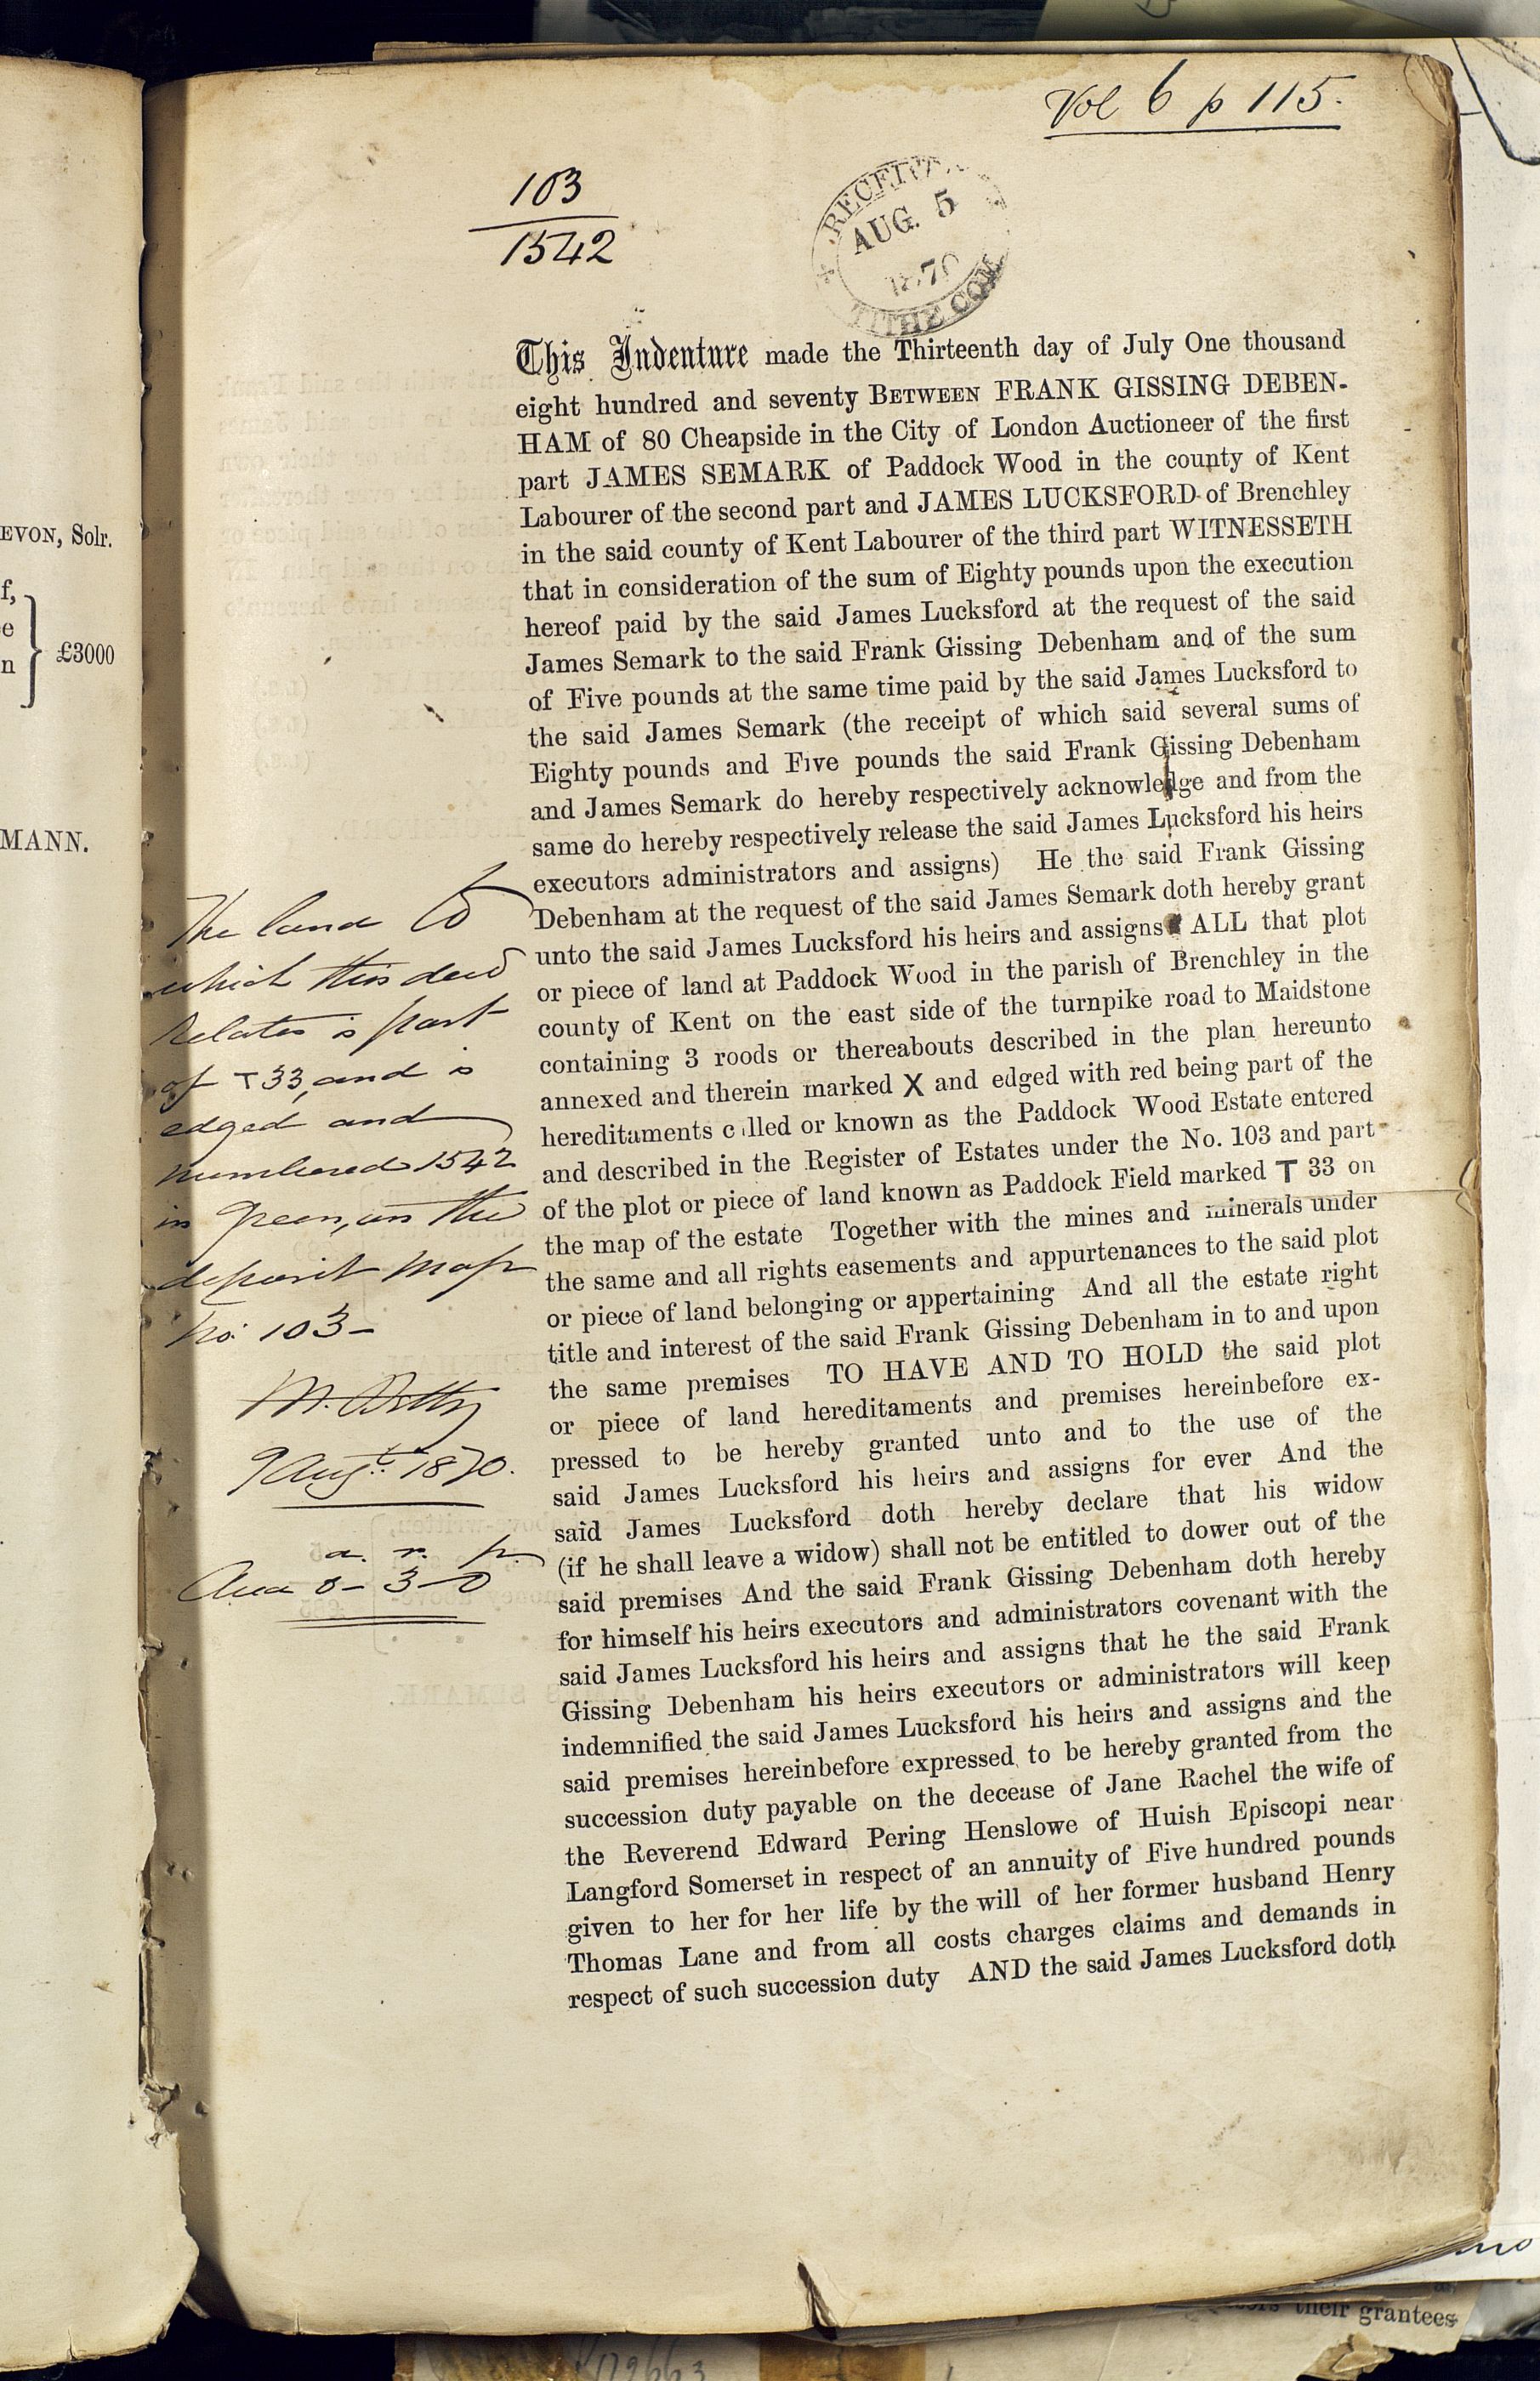 Vol 6 p 115.
103
1542
AUG. 5
1870
TITHE COM
This Indenture made the Thirteenth day of July One thousand
eight hundred and seventy BETWEEN FRANK GISSING DEBEN-
HAM of 80 Cheapside in the City of London Auctioneer of the first
part JAMES SEMARK of Paddock Wood in the county of Kent
Labourer of the second part and JAMES LUCKSFORD of Brenchley
in the said county of Kent Labourer of the third part WITNESSETH
that in consideration of the sum of Eighty pounds upon the execution
hereof paid by the said James Lucksford at the request of the said
James Semark to the said Frank Gissing Debenham and of the sum
of Five pounds at the same time paid by the said James Lucksford to
the said James Semark (the receipt of which said several sums of
Eighty pounds and Five pounds the said Frank Gissing Debenham
and James Semark do hereby respectively acknowledge and from the
same do hereby respectively release the said James Lucksford his heirs
executors administrators and assigns) He the said Frank Gissing
Debenham at the request of the said James Semark doth hereby grant
unto the said James Lucksford his heirs and assigns ALL that plot
or piece of land at Paddock Wood in the parish of Brenchley in the
county of Kent on the east side of the turnpike road to Maidstone
containing 3 roods or thereabouts described in the plan hereunto
annexed and therein marked X and edged with red being part of the
hereditaments called or known as the Paddock Wood Estate entered
and described in the Register of Estates under the No. 103 and part
of the plot or piece of land known as Paddock Field marked T 33 on
the map of the estate Together with the mines and minerals under
the same and all rights easements and appurtenances to the said plot
or piece of land belonging or appertaining And all the estate right
title and interest of the said Frank Gissing Debenham in to and upon
the same premises TO HAVE AND TO HOLD the said plot
or piece of land hereditaments and premises hereinbefore ex-
pressed to be hereby granted unto and to the use of the
said James Lucksford his heirs and assigns for ever And the
said James Lucksford doth hereby declare that his widow
(if he shall leave a widow) shall not be entitled to dower out of the
said premises And the said Frank Gissing Debenham doth hereby
for himself his heirs executors and administrators covenant with the
said James Lucksford his heirs and assigns that he the said Frank
Gissing Debenham his heirs executors or administrators will keep
indemnified the said James Lucksford his heirs and assigns and the
said premises hereinbefore expressed to be hereby granted from the
succession duty payable on the decease of Jane Rachel the wife of
the Reverend Edward Pering Henslowe of Huish Episcopi near
Langford Somerset in respect of an annuity of Five hundred pounds
given to her for her life by the will of her former husband Henry
Thomas Lane and from all costs charges claims and demands in
respect of such succession duty AND the said James Lucksford doth
The land to
which this deed
relates is part
of T 33, and is
edged and
numbered 1542
in green, on the
deposit map
No. 103-
9 Augt. 1870.
a. r. p.
Area 0-3-0
EVON, Solr.
f,
e
n
£3000
MANN.
their grantees